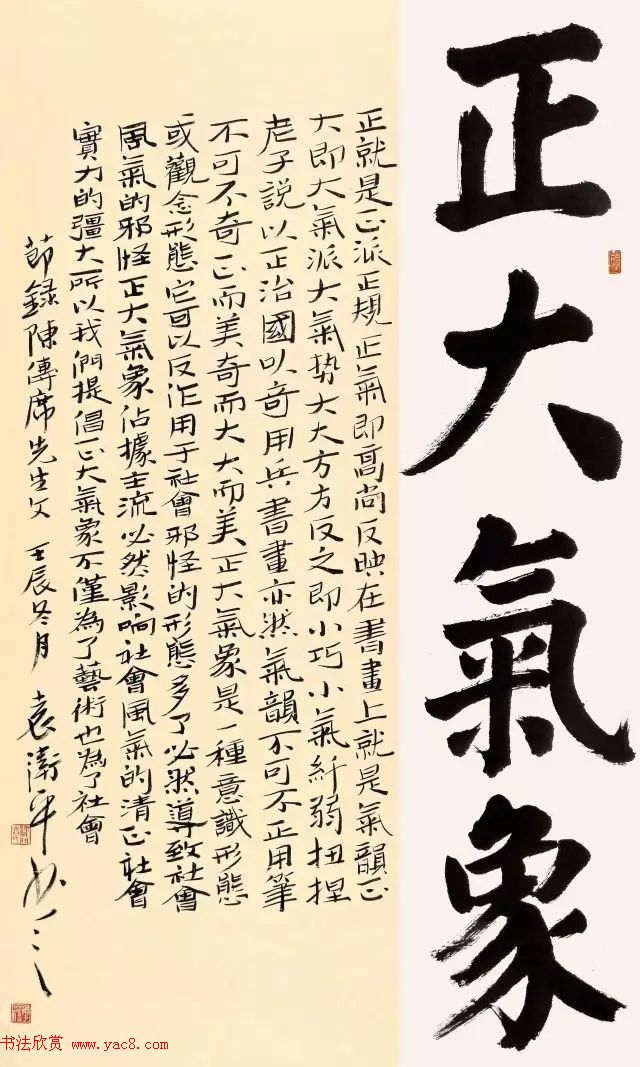 正大氣象
正就是正派正規正氣即高尚反映在書畫上就是氣韻正
大即大氣派大氣势大大方方反之即小巧小氣纤弱扭捏
老子説以正治國以奇用兵書畫亦然氣韻不可不正用筆
不可不奇正而美奇而大大而美正大氣象是一種意識形態
或觀念形態它可以反作用于社會邪怪的形態多了必然導致社會
風氣的邪怪正大氣象佔據主流必然影响社會風氣的清正社會
實力的彊大所以我們提倡正大氣象不僅為了藝術也為了社會
節録陳傳席先生文 壬辰冬月 袁衛平書
书法欣赏 www.yac8.com